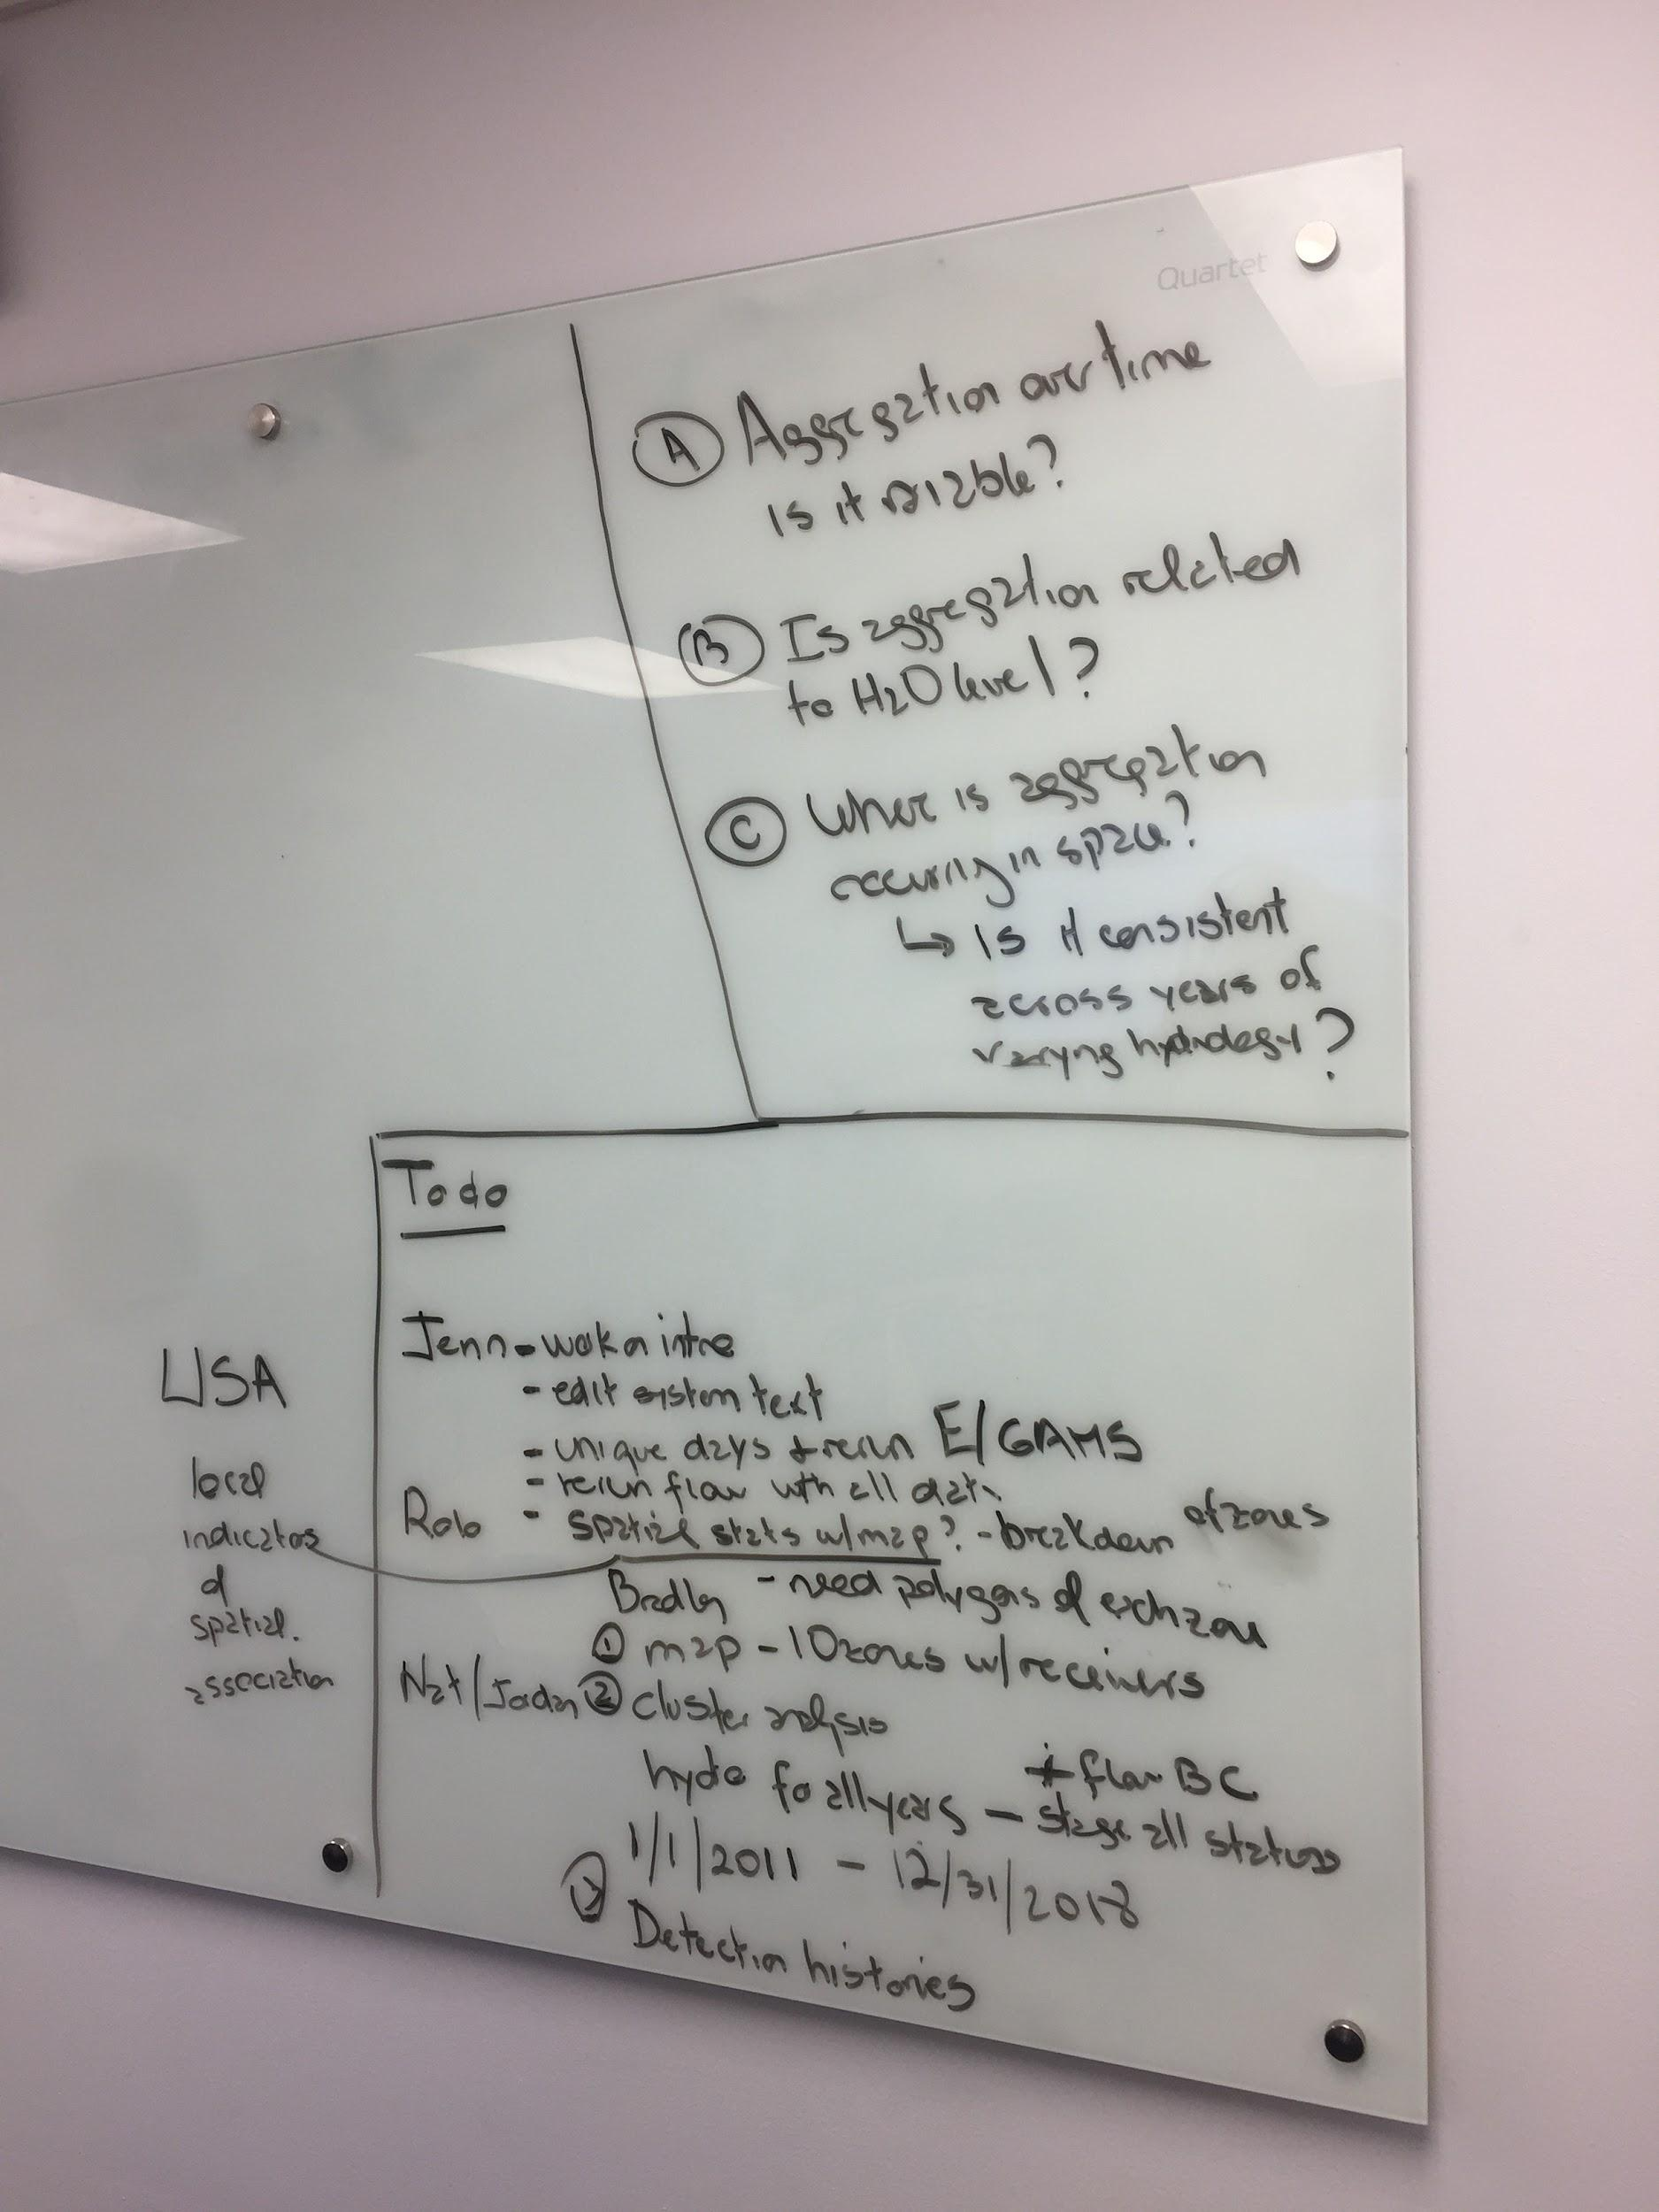 Quartet
A Aggregation over time
is it variable?
B Is aggregation related
to H2O level?
C Where is aggregation
occuring in space?
↳ Is it consistent
across years of
varying hydrology?
Todo
Jenn - work on intro
- edit system text
- unique days + rerun E/GAMS
- rerun flow with all data
Rolo - spatial stats w/map? - breakdown of zones
Bradley - need polygons of each zone
① map - 10 zones w/receivers
Nat/Jordan ② cluster analysis
hydro for all years - stage all stations
+ flow BC
1/1/2011 - 12/31/2018
③
Detection histories
LISA
local
indicators
of
spatial.
association